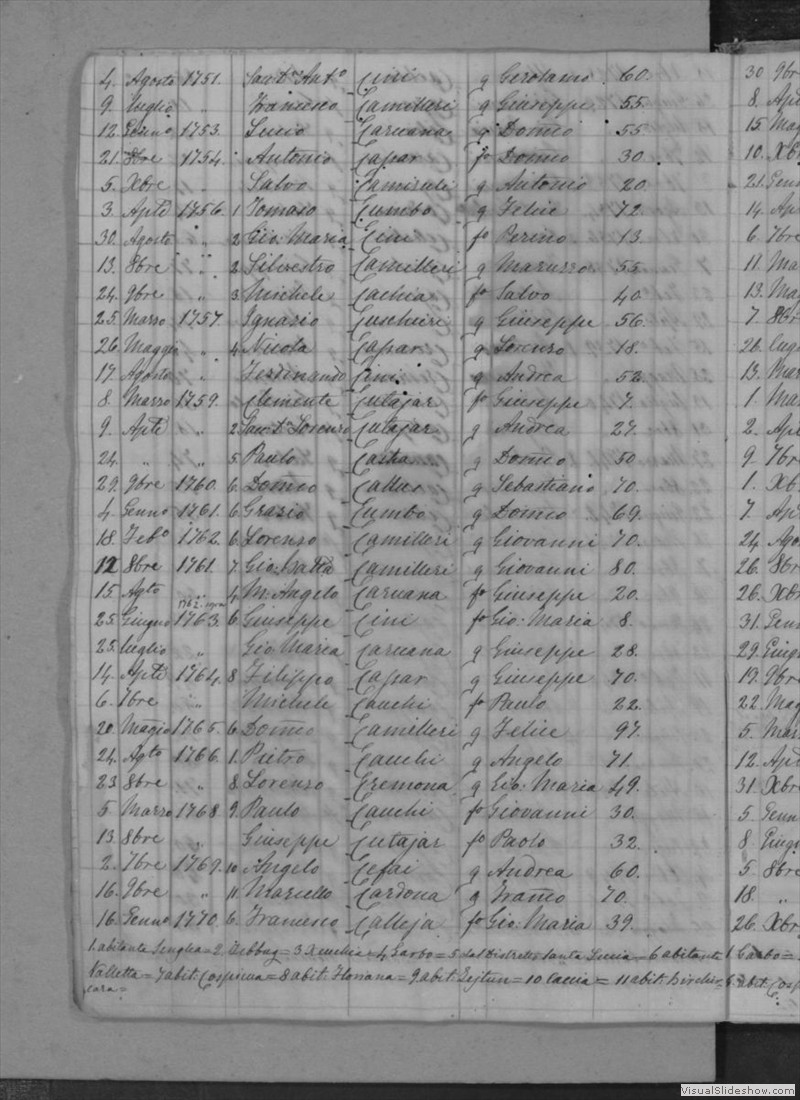 4. Agosto 1751. Sant. Ant.o Cini q Gerolamo. 60.
9. Luglio „ Francesco Camilleri q Giuseppe 55.
12. Genno 1753. Lucio Caruana q Domco 55
21. 8bre 1754. Antonio Capar fo Domco 30.
5. Xbre „ Salvo q Antonio 20.
3. Aple 1756. 1 Tomaso Cumbo q Felice 72.
30. Agosto „ 2 Gio: Maria Cini fo Perino 13.
13. 8bre „ 2 Silvestro Camilleri q 55.
24. 9bre „ 3 Michele Cachia fo Salvo 40.
25. Marzo 1757. Ignazio Cuschieri q Giuseppe 56.
26. Maggio „ 4 Nicola Capar q Lorenzo 18.
17. Agosto „ Ferdinando Cini q Andrea 52.
8. Marzo 1759. Clemente Cutajar fo Giuseppe 7.
9. Aple „ 2 Lorenzo Cutajar q Andrea 27.
24. „ „ 5 Paulo q Domco 50
29. 9bre 1760. 6. Domco Callus q Sebastiano 70.
4. Genno 1761. 6 Grazio Cumbo q Domco 69.
18. Febo 1762. 6. Lorenzo Camilleri q Giovanni 70.
12 8bre 1761. 7. Gio. Batta Camilleri q Giovanni 80.
15. Agto „ 4 M. Angelo Caruana fo Giuseppe 20.
25. Giugno 1763. 6 Giuseppe Cini fo Gio: Maria 8.
25. Luglio „ Gio. Maria Caruana q Giuseppe 28.
14. Aple 1764. 8 Filippo Capar q Giuseppe 70.
6. 7bre „ Michele Cauchi fo Paulo 22.
20. Maggio 1765. 6. Domco Camilleri q Felice 97.
24. Agto 1766. 1. Pietro Cauchi q Angelo 71.
23 8bre „ 8 Lorenzo Cremona q Gio: Maria 49.
5 Marzo 1768. 9. Paulo Cauchi fo Giovanni 30.
13. 8bre „ Giuseppe Cutajar fo Paolo 32.
2. 7bre 1769. 10 Angelo Cefai q Andrea 60.
16. 9bre „ 11 Marcello Cardona q Franco 70.
16. Genno 1770. 6. Francesco Calleja fo Gio: Maria 39.
1. abitante Senglea = 2. Zebbug = 3 = 4 Garbo = 5 Santa Lucia = 6 abitante
Valletta = 7 abit. Cospicua = 8 abit. Floriana = 9 abit. Zejtun = 10 Caccia = 11 abit. Birchir-
cara =
30 9bre
8. Aple
15 Mag
10. Xb
21. Genn
14. Ap
6. 7bre
11. Ma
13. Mag
7 8bre
26.
13. Mar
1. Mar
2. Ap
9 7bre
1. Xb
7. Ap
24 Ago
26. 8bre
26. Xbre
31. Genn
29. Giug
17. 9bre
22. Mag
5. Mar
12. Ap
31. Xbre
5. Genn
8 Giug
5 8bre
18. „
26. Xbr
VisualSlideshow.com